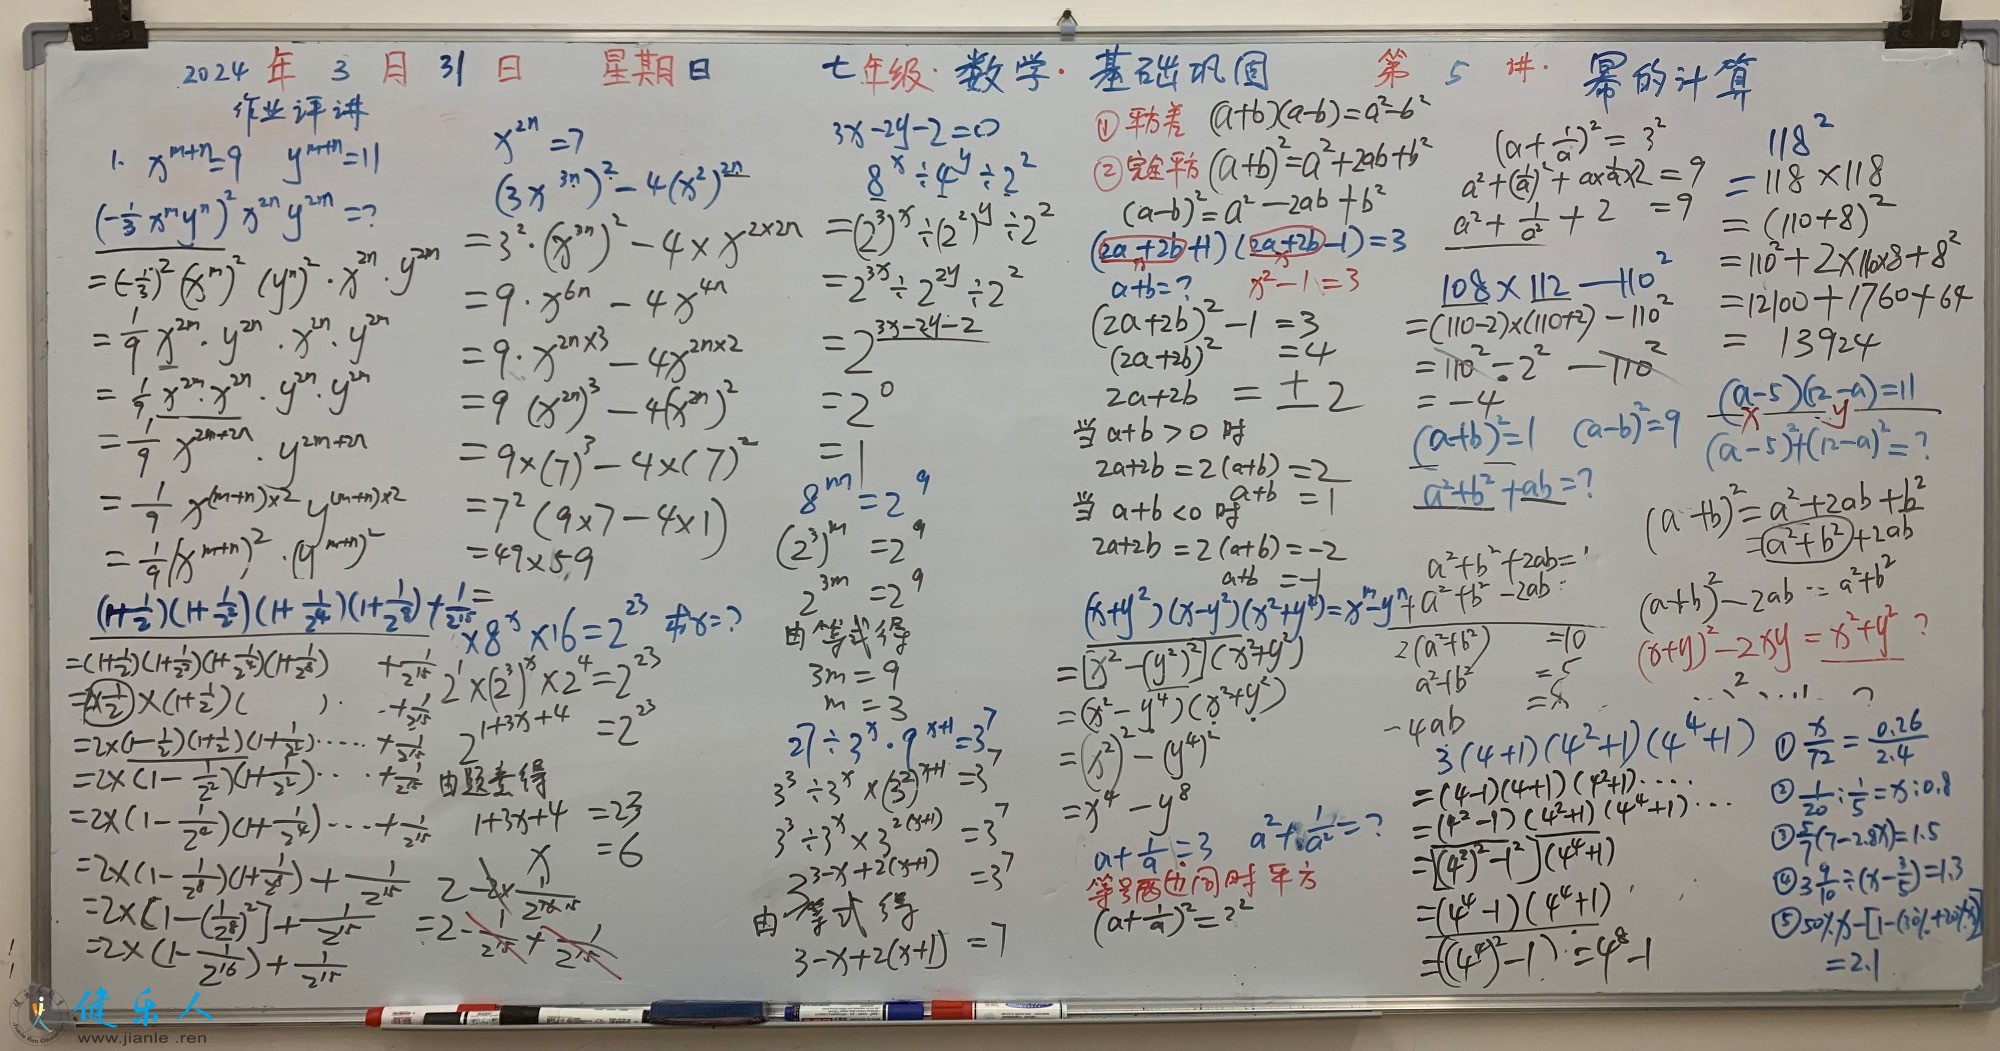 2024年3月31日 星期日 七年级·数学·基础巩固 第5讲·幂的计算
作业评讲
1. x^{m+n}=9 y^{m+n}=11
(-1/3 x^m y^n)^2 x^{2n} y^{2m} =?
=(-1/3)^2 (x^m)^2 (y^n)^2 · x^{2n} · y^{2m}
=1/9 x^{2m} · y^{2n} · x^{2n} · y^{2m}
=1/9 x^{2m} · x^{2n} · y^{2n} · y^{2m}
=1/9 x^{2m+2n} · y^{2m+2n}
=1/9 x^{(m+n)×2} y^{(m+n)×2}
=1/9 (x^{m+n})^2 · (y^{m+n})^2
(1+1/2)(1+1/2^2)(1+1/2^4)(1+1/2^8)+1/2^15=
=(1+1/2)(1+1/2^2)(1+1/2^4)(1+1/2^8) +1/2^15
=2×1/2×(1+1/2)( ) · ·+1/2^15
=2×(1-1/2)(1+1/2)(1+1/2^2)·····+1/2^15
=2×(1-1/2^2)(1+1/2^2)···+1/2^15
=2×(1-1/2^4)(1+1/2^4)···+1/2^15
=2×(1-1/2^8)(1+1/2^8)+1/2^15
=2×[1-(1/2^8)^2]+1/2^15
=2×(1-1/2^16)+1/2^15
x^{2n}=7
(3x^{3n})^2-4(x^2)^{2n}
=3^2·(x^{3n})^2-4×x^{2×2n}
=9·x^{6n}-4x^{4n}
=9·x^{2n×3}-4x^{2n×2}
=9(x^{2n})^3-4(x^{2n})^2
=9×(7)^3-4×(7)^2
=7^2(9×7-4×1)
=49×59
×8^x×16=2^23 求x=?
2^1×(2^3)^x×2^4=2^23
2^{1+3x+4}=2^23
由题意得
1+3x+4=23
x=6
2-2×1/2^{16}
=2-1/2^15+1/2^15
3x-2y-2=0
8^x÷4^y÷2^2
=(2^3)^x÷(2^2)^y÷2^2
=2^{3x}÷2^{2y}÷2^2
=2^{3x-2y-2}
=2^0
=1
8^m=2^9
(2^3)^m=2^9
2^{3m}=2^9
由等式得
3m=9
m=3
27÷3^x·9^{x+1}=3^7
3^3÷3^x×(3^2)^{x+1}=3^7
3^3÷3^x×3^{2(x+1)}=3^7
3^{3-x+2(x+1)}=3^7
由等式得
3-x+2(x+1)=7
①平方差 (a+b)(a-b)=a^2-b^2
②完全平方 (a+b)^2=a^2+2ab+b^2
(a-b)^2=a^2-2ab+b^2
(2a+2b+1)(2a+2b-1)=3
x x
a+b=? x^2-1=3
(2a+2b)^2-1=3
(2a+2b)^2=4
2a+2b=±2
当a+b>0时
2a+2b=2(a+b)=2
a+b=1
当a+b<0时
2a+2b=2(a+b)=-2
a+b=-1
(x+y^2)(x-y^2)(x^2+y^4)=x^m-y^n
=[x^2-(y^2)^2](x^2+y^2)
=(x^2-y^4)(x^2+y^2)
=(x^2)^2-(y^4)^2
=x^4-y^8
a+1/a=3 a^2+1/a^2=?
等号两边同时平方
(a+1/a)^2=3^2
(a+1/a)^2=3^2
a^2+(1/a)^2+a×1/a×2=9
a^2+1/a^2+2=9
108×112-110^2
=(110-2)×(110+2)-110^2
=110^2-2^2-110^2
=-4
(a+b)^2=1 (a-b)^2=9
a^2+b^2+ab=?
a^2+b^2+2ab=1
+a^2+b^2-2ab=
2(a^2+b^2)=10
a^2+b^2=5
-4ab
3(4+1)(4^2+1)(4^4+1)
=(4-1)(4+1)(4^2+1)····
=(4^2-1)(4^2+1)(4^4+1)···
=[(4^2)^2-1^2](4^4+1)
=(4^4-1)(4^4+1)
=((4^4)^2-1)=4^8-1
118^2
=118×118
=(110+8)^2
=110^2+2×110×8+8^2
=12100+1760+64
=13924
(a-5)(12-a)=11
x y
(a-5)^2+(12-a)^2=?
(a+b)^2=a^2+2ab+b^2
=(a^2+b^2)+2ab
(a+b)^2-2ab=a^2+b^2
(x+y)^2-2xy=x^2+y^2?
①x/72=0.26/2.4
②1/20:1/5=x:0.8
③5/7(7-2.8x)=1.5
④3 9/10÷(x-3/5)=1.3
⑤50%x-[1-(30%+20%x)]
=2.1
健乐人
www.jianle.ren